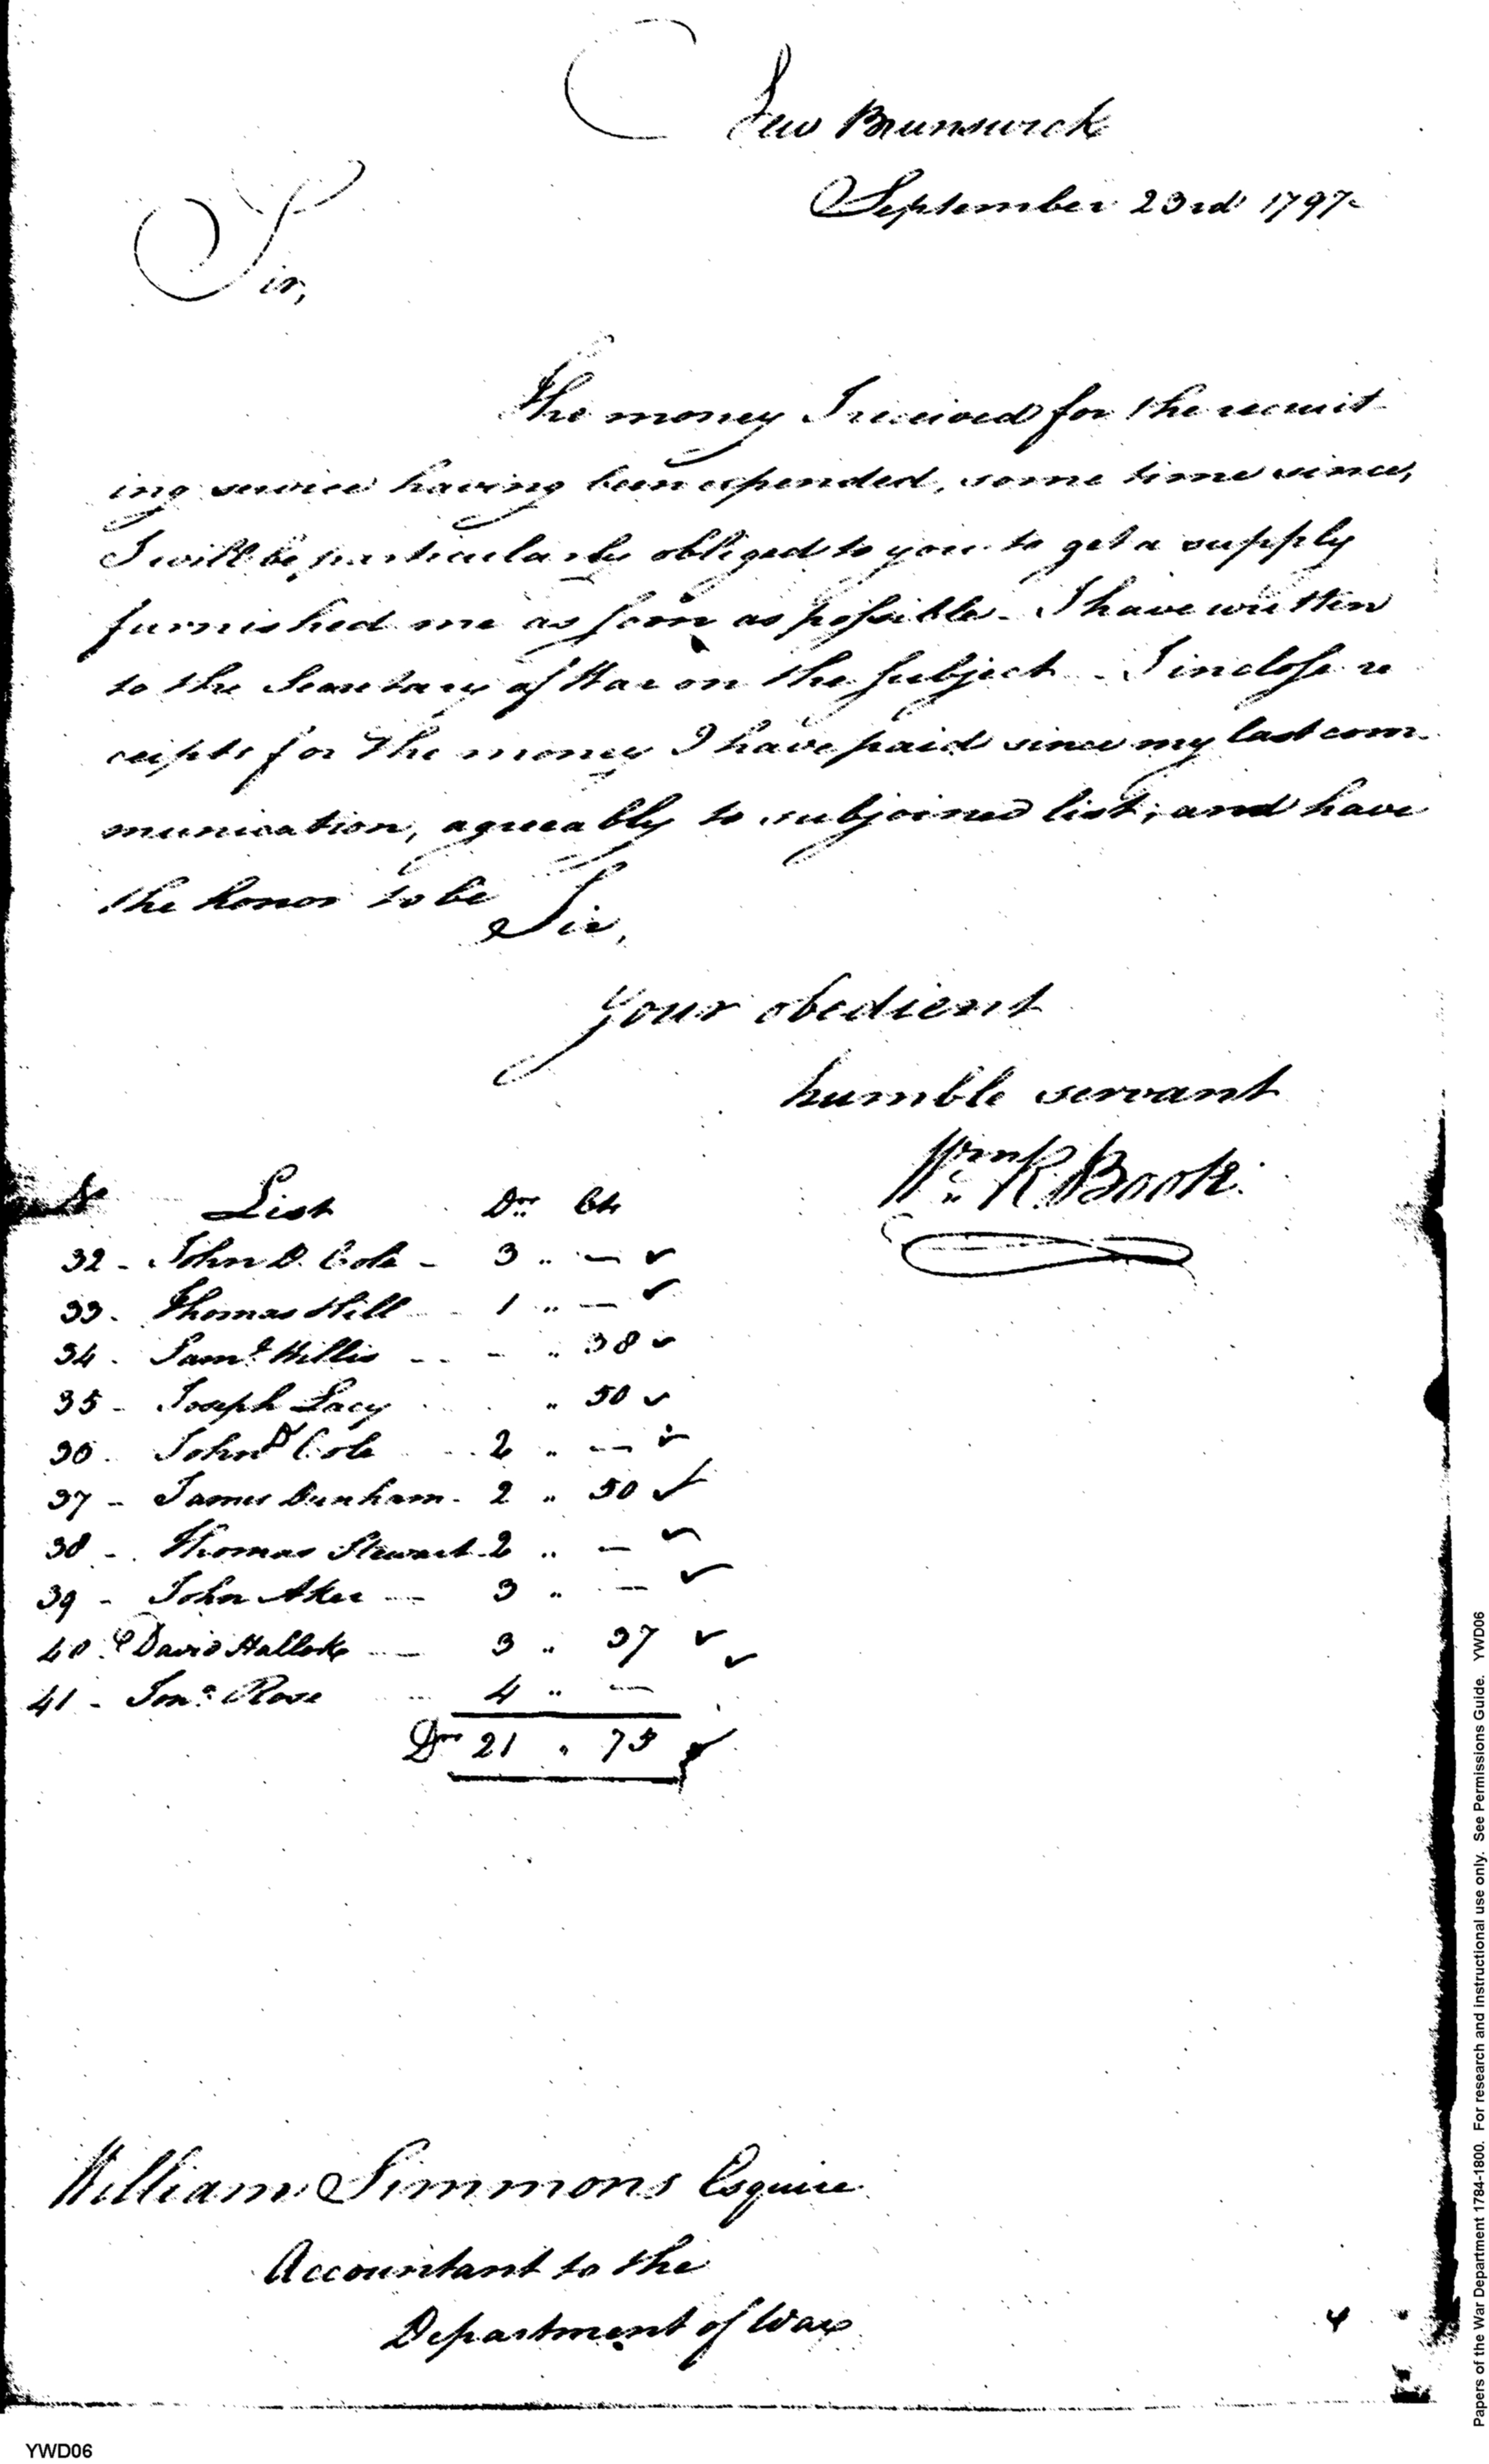 New Brunswick
September 23rd 1797
Sir,
The money I received for the recruit-
ing service having been expended, some time since,
I will be particularly obliged to you to get a supply
furnished me as soon as possible. I have written
to the Secretary of War on the subject. I inclose re
ceipts for the money I have paid since my last com-
munication, agreeably to subjoined list; and have
the honor to be
Sir,
Your obedient
humble servant
Wm. R. Boote
No List Drs Cts
32 - John D. Cole - 3 " — ✓
33. Thomas Hill 1 " — ✓
34. Saml. Willis - " 38 ✓
35 - Joseph Lacy " 50 ✓
36. John D Cole 2 " — ✓
37 - James Dunham - 2 " 50 ✓
38 - Thomas Stewart 2 " — ✓
39 - John Aker 3 " — ✓
40. David Hallok 3 " 37 ✓
41 - Jona. Rose 4 " — ✓
Drs 21 " 75 ✓
William Simmons Esquire
Accountant to the
Department of War
4
Papers of the War Department 1784-1800. For research and instructional use only. See Permissions Guide. YWD06
YWD06